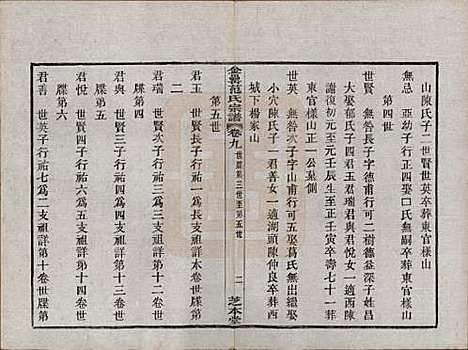 山陳氏子二世賢世英卒葬東官樣山
無忌 亞幼子行正四娶口氏無嗣卒葬東官樣山
第四世
世賢 無咎長子字德甫行可二樹德益深子姓昌
大娶郁氏子四君玉君瑞君與君悅女一適西陳
壽復初至元壬辰卒至正壬寅卒壽七十一葬
東官樣山正一公墓側
世英 無咎次子字山甫行可五娶葛氏無出繼娶
小穴陳氏子一君善女一適湖頭陳仲良卒葬
城下楊家山
金鼇范氏宗譜 卷九 世牒第三世至第五世 二 芝本堂
第五世
君玉 世賢長子行祐一爲長支祖詳本卷世牒第
二
君瑞 世賢次子行祐二爲二支祖詳第十卷世
牒第四
君與 世賢三子行祐四爲四支祖詳第十三卷世
牒第五
君悅 世賢四子行祐六爲五支祖詳第十四卷世
牒第六
君善 世英子行祐七爲二支祖詳第十卷世牒第